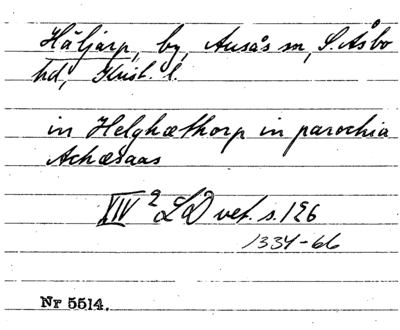 Häljarp, by, Ausås sn, S. Åsbo
hd, Krist. l.
in Helghæthorp in parochia
Achæsaas
XIV 2 LD vet. s. 126
1334-66
Nr 5514.